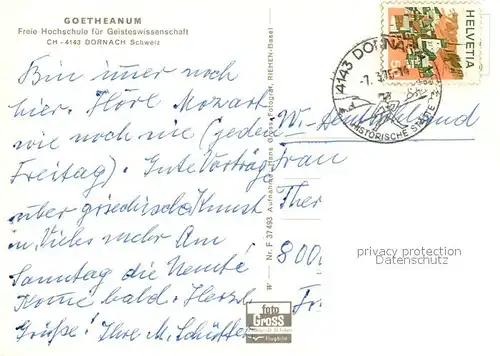 GOETHEANUM
Freie Hochschule für Geisteswissenschaft
CH - 4143 DORNACH Schweiz
Bin immer noch
hier. Höre Mozart
wie noch nie (jeden
Freitag). Gute Vorträge
über griechische Kunst
u. Vieles mehr Am
Sonntag die
Komme bald. Herzl.
Grüße! Ihre M.
W Nr. F 37493 Aufnahme: Hans Gross, Fotograf, RIEHEN-Basel
foto
Gross
Flugbild
4143 DORNACH
-7.
HISTORISCHE STÄTTE
HELVETIA
W. Deutschland
Frau
Ther
800
Fr
privacy protection
watermark